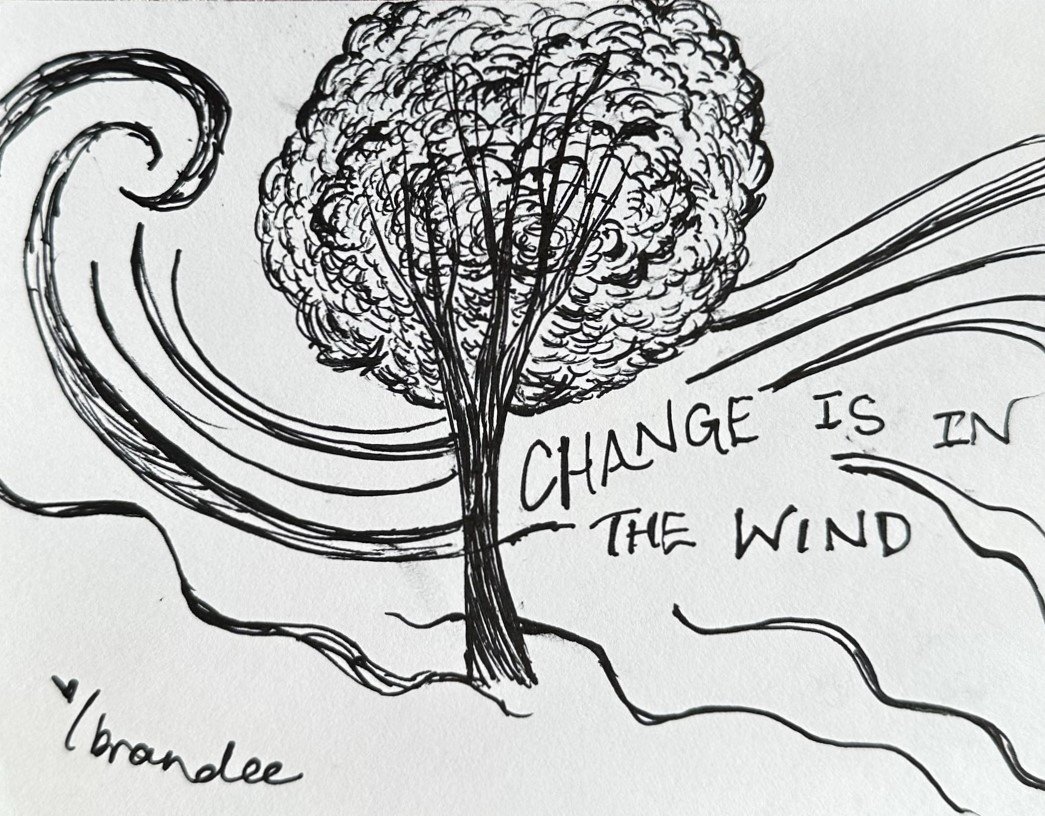 CHANGE IS IN
THE WIND
♥/brandee